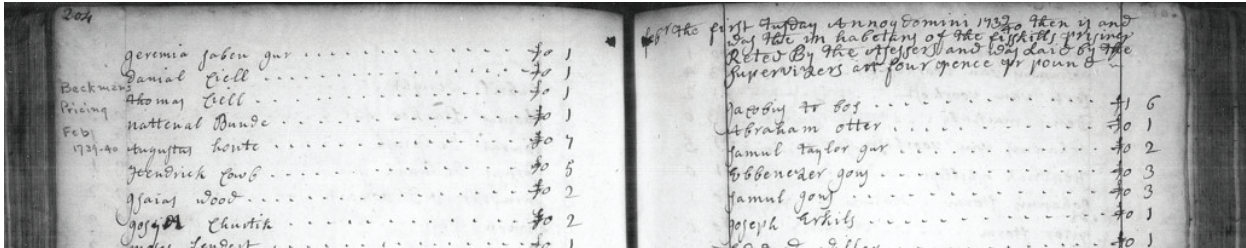 204
geremia saben gur . . . . . . . . ₤0 1
danial Ciell . . . . . . . . ₤0 1
thomas Ciell . . . . . . . . ₤0 1
nattenal Bunde . . . . . . . . ₤0 1
Augustas houte . . . . . . . . ₤0 7
Hendrick Cowb . . . . . . . . ₤0 5
gsaias wood . . . . . . . . ₤0 2
Churtih . . . . . . . . ₤0 2
₤0 1
Beckmans
Pricing
Feb
1739-40
the first tusday Annoy domini 1739/40 then is and
was the in habetans of the fisskills prising
Reted By the Asessers and was laid by the
supervizers att four pence pr pound
Jacobus ter bos . . . . . . . . ₤1 6
Abraham otter . . . . . . . . ₤0 1
Samul taylor gur . . . . . . . . ₤0 2
Ebbenezer gons . . . . . . . . ₤0 3
Samul gons . . . . . . . . ₤0 3
Joseph Erkils . . . . . . . . ₤0 1
₤0 1